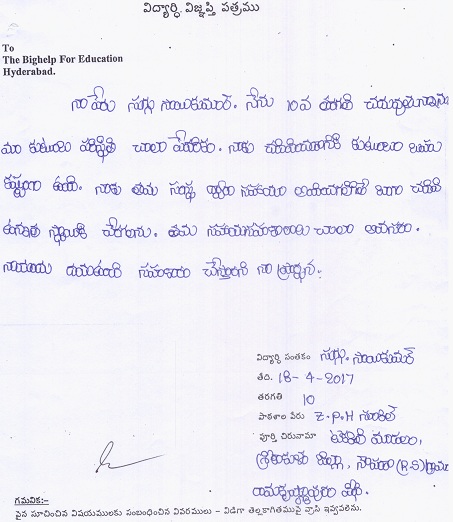 విద్యార్థి విజ్ఞప్తి పత్రము
To
The Bighelp For Education
Hyderabad.
నా పేరు సుగ్గు సాయికుమార్. నేను 10వ తరగతి చదువుచున్నాను
మా కుటుంబ పరిస్థితి చాలా పేదరికం. నాకు చదివించడానికి కుటుంబం
కష్టంగా ఉంది. నాకు తమ సంస్థ ద్వారా సహాయం బాగా చదివి
ఉన్నత స్థాయికి చేరగలను. తమ సహాయసహకారాలు చాలా అవసరం.
దయఉంచి సహకారం చేస్తారని నా ప్రార్థన.
విద్యార్థి సంతకం సుగ్గు. సాయికుమార్
తేది. 18-4-2017
తరగతి 10
పాఠశాల పేరు Z.P.H
పూర్తి చిరునామా టెక్కలి మండలం,
శ్రీకాకుళం జిల్లా, నౌపడా (R.S) గ్రామం
గమనిక:-
పైన సూచించిన విషయములకు సంబంధించిన వివరములు - విడిగా తెల్లకాగితముపై వ్రాసి ఇవ్వవలెను.